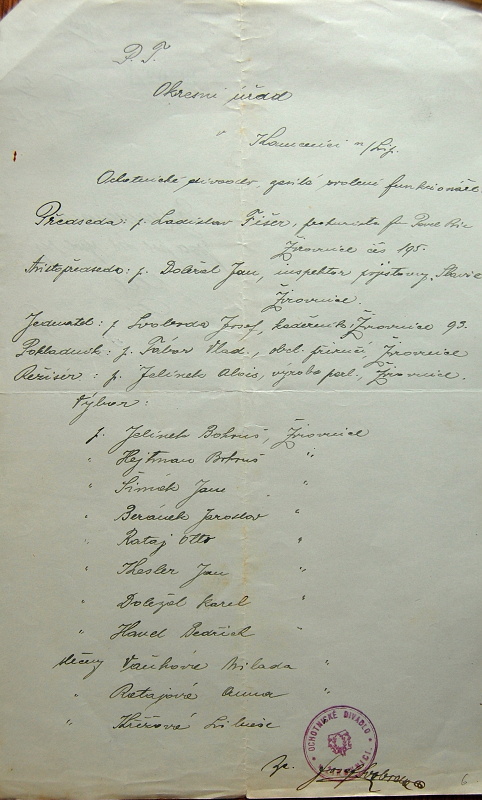 P. T.
Okresní úřad
v Kamenici n/Lip.
Ochotnické divadlo zvolení funkcionáře
Předseda: p. Ladislav Fišer, fakturista f. Pavel
Žirovnice čís 195.
Místopředseda: p. Doležal Jan, inspektor pojišťovny Slavie
Žirovnice.
Jednatel: p. Svoboda Josef, kadeřník, Žirovnice 93.
Pokladník: p. Tábor Vlad., obch. příručí, Žirovnice
Režisér: p. Jelínek Alois, výroba perl., Žirovnice.
Výbor:
p. Jelínek Bohouš, Žirovnice
" Hejtman Bohouš "
" Šimek Jan "
" Beránek Jaroslav "
" Rataj Otto "
" Thesler Jan "
" Doležal Karel "
" Havel Bedřich "
slečny Vaňková Milada "
" Ratajová Anna "
" Křížová Libuše "
OCHOTNICKÉ DIVADLO
Svoboda
6